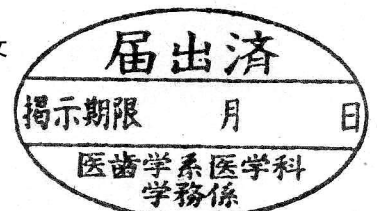 届出済
掲示期限　　月　　日
医歯学系医学科
学務係